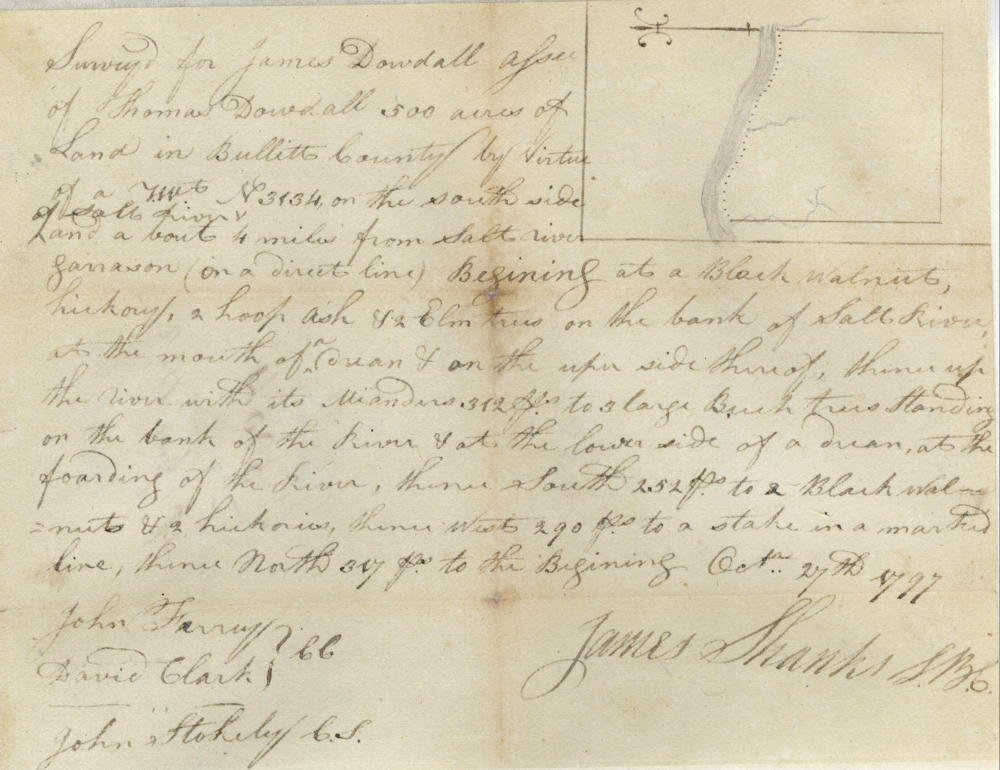 Survey'd for James Dowdall assee
of Thomas Dowdall 500 acres of
Land in Bullitt County by Virtue
of a TWt N 3134 on the south side
of Salt River
and a bout 4 miles from Salt river
garrason (on a direct line) Begining at a Black walnut,
hickory, 2 hoop ash & 2 Elm trees on the bank of Salt River,
at the mouth of a drean & on the uper side thereof, thence up
the river with its Meanders 312 ps to 3 large Buch trees Standing
on the bank of the River & at the lower side of a drean, at the
foarding of the River, thence South 252 ps to 2 Black wal-
=nuts & 2 hickories, thence West 290 ps to a stake in a marked
line, thence North 317 ps to the Begining Octr 27th 1797
John Ferry
David Clark } CC
James Shanks S.B.C.
John Stokely C.S.